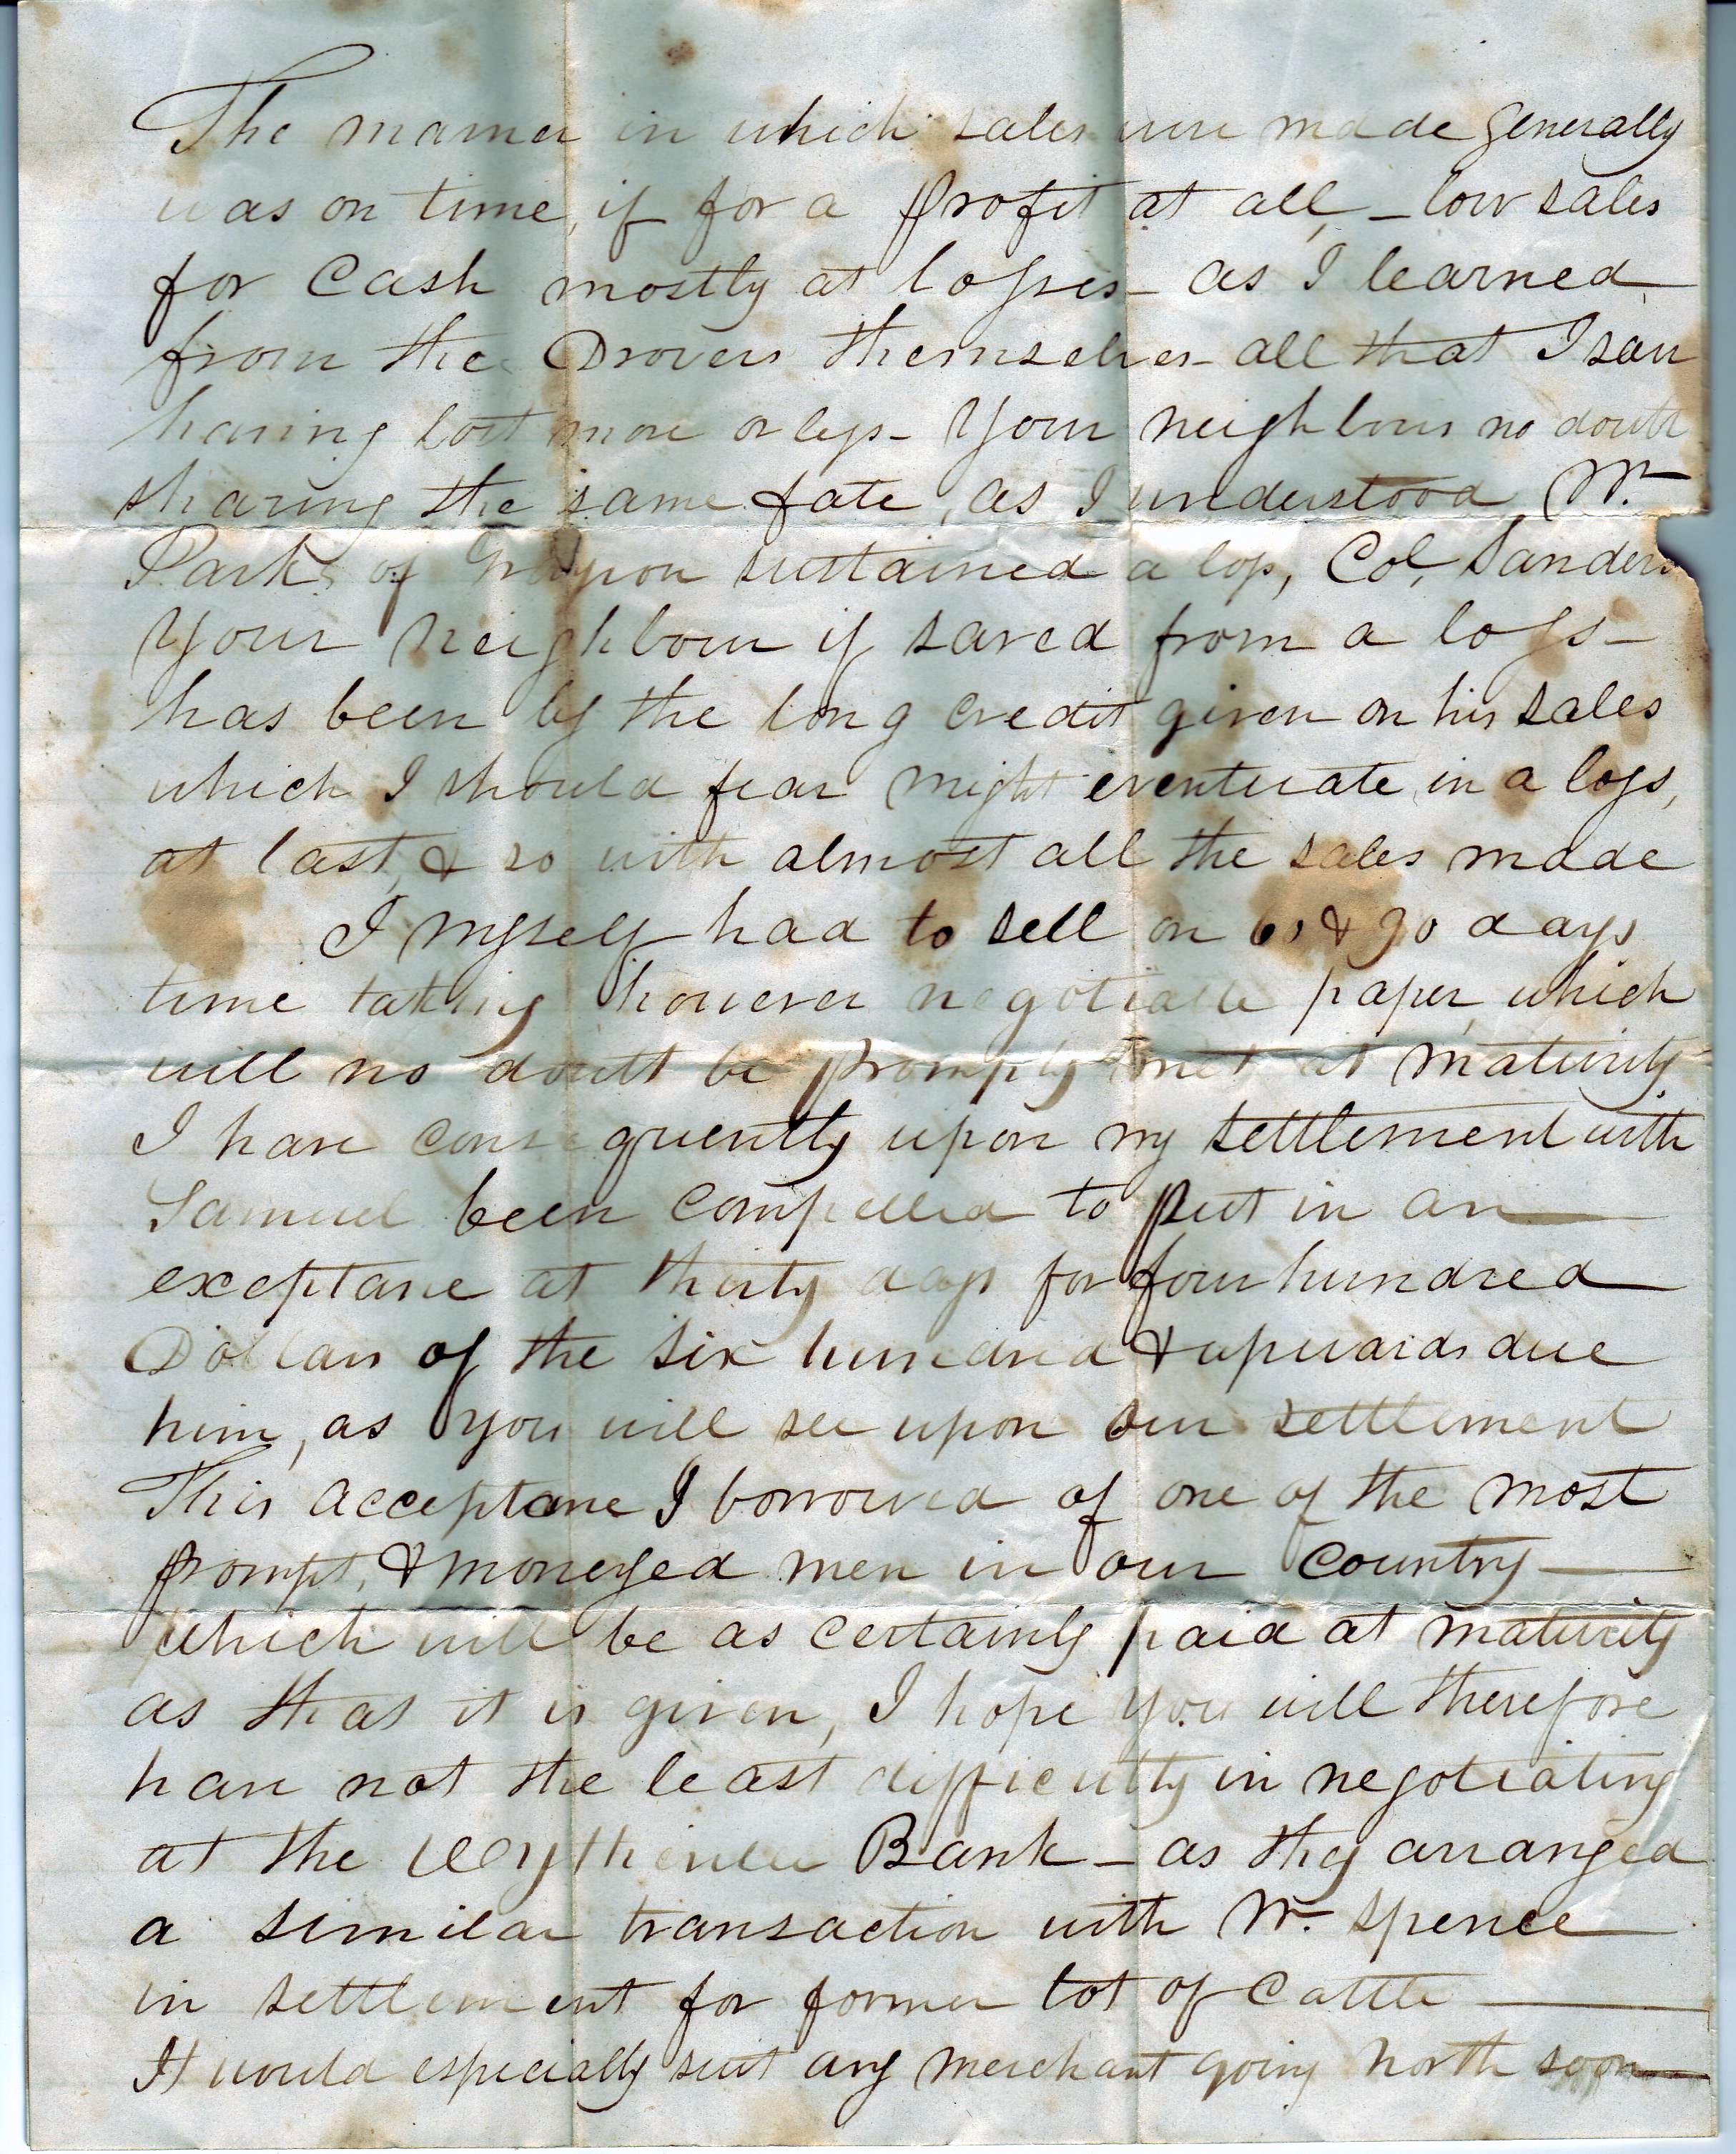 The manner in which sales were made generally
was on time, if for a profit at all, – low sales
for Cash mostly at losses – as I learned
from the Drovers themselves – all that I saw
having lost more or less – Your neighbours no doubt
sharing the same fate, as I understood, Mr.
Parks of Grayson sustained a loss, Col, Sanders
Your neighbour if saved from a loss –
has been by the long credit given on his sales
which I should fear might eventuate in a loss,
at last, & so with almost all the sales made
I myself had to sell on 60 & 90 days
time taking however negotiable paper, which
will no doubt be promptly met at maturity
I have consequently upon my settlement with
Samuel been compelled to put in an
exceptane at thirty days for four hundred
Dollars of the six hundred & upwards due
him, as you will see upon our settlement
This acceptane I borrowed of one of the most
prompt, & moneyed men in our country –
which will be as certainly paid at maturity
as that it is given, I hope you will therefore
have not the least difficulty in negotiating
at the Wytheville Bank – as they arranged
a similar transaction with Mr. Spence
in settlement for former lot of Cattle –
It would especially suit any merchant going North soon –